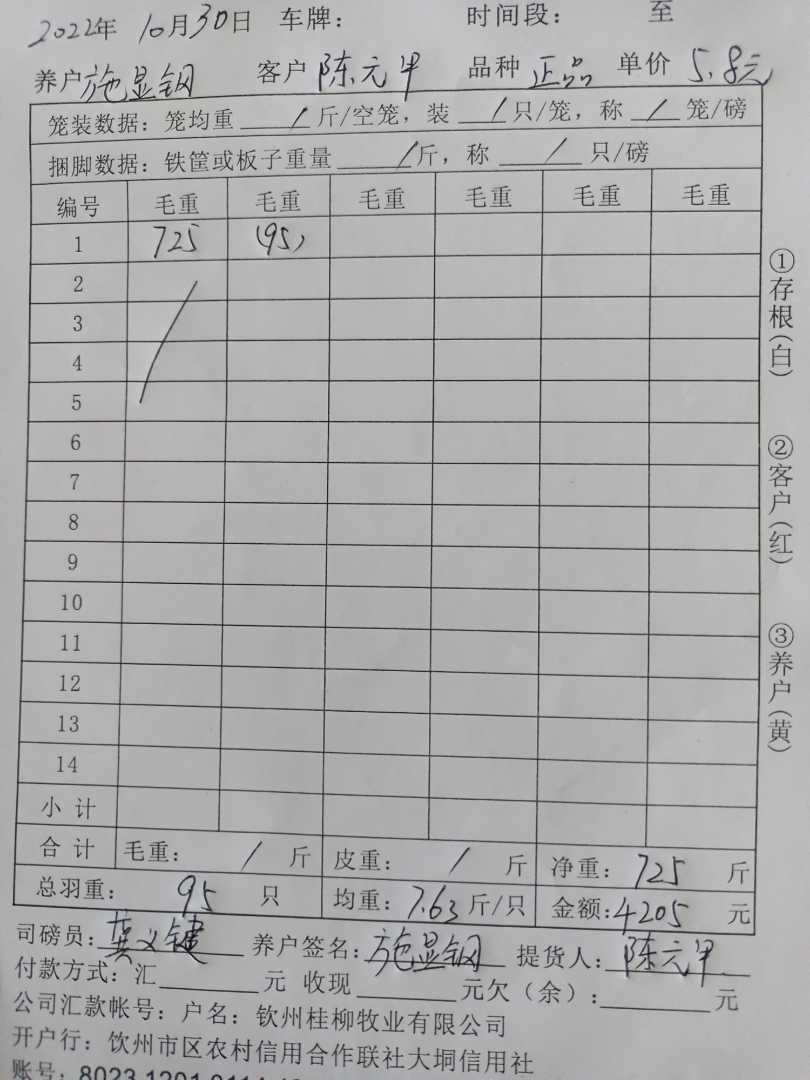 2022年 10月30日 车牌: 时间段: 至
养户 施显钢 客户 陈元甲 品种 正品 单价 5.8元
笼装数据: 笼均重 / 斤/空笼, 装 / 只/笼, 称 / 笼/磅
捆脚数据: 铁筐或板子重量 / 斤, 称 / 只/磅
编号 毛重 毛重 毛重 毛重 毛重 毛重
1 725 (95)
2
3
4
5
6
7
8
9
10
11
12
13
14
小计
合计 毛重: / 斤 皮重: / 斤 净重: 725 斤
总羽重: 95 只 均重: 7.63 斤/只 金额: 4205 元
司磅员: 莫义键 养户签名: 施显钢 提货人: 陈元甲
付款方式: 汇 元 收现 元欠(余): 元
公司汇款帐号: 户名: 钦州桂柳牧业有限公司
开户行: 饮州市区农村信用合作联社大垌信用社
账号: 8023 1201 0114
①存根(白)
②客户(红)
③养户(黄)